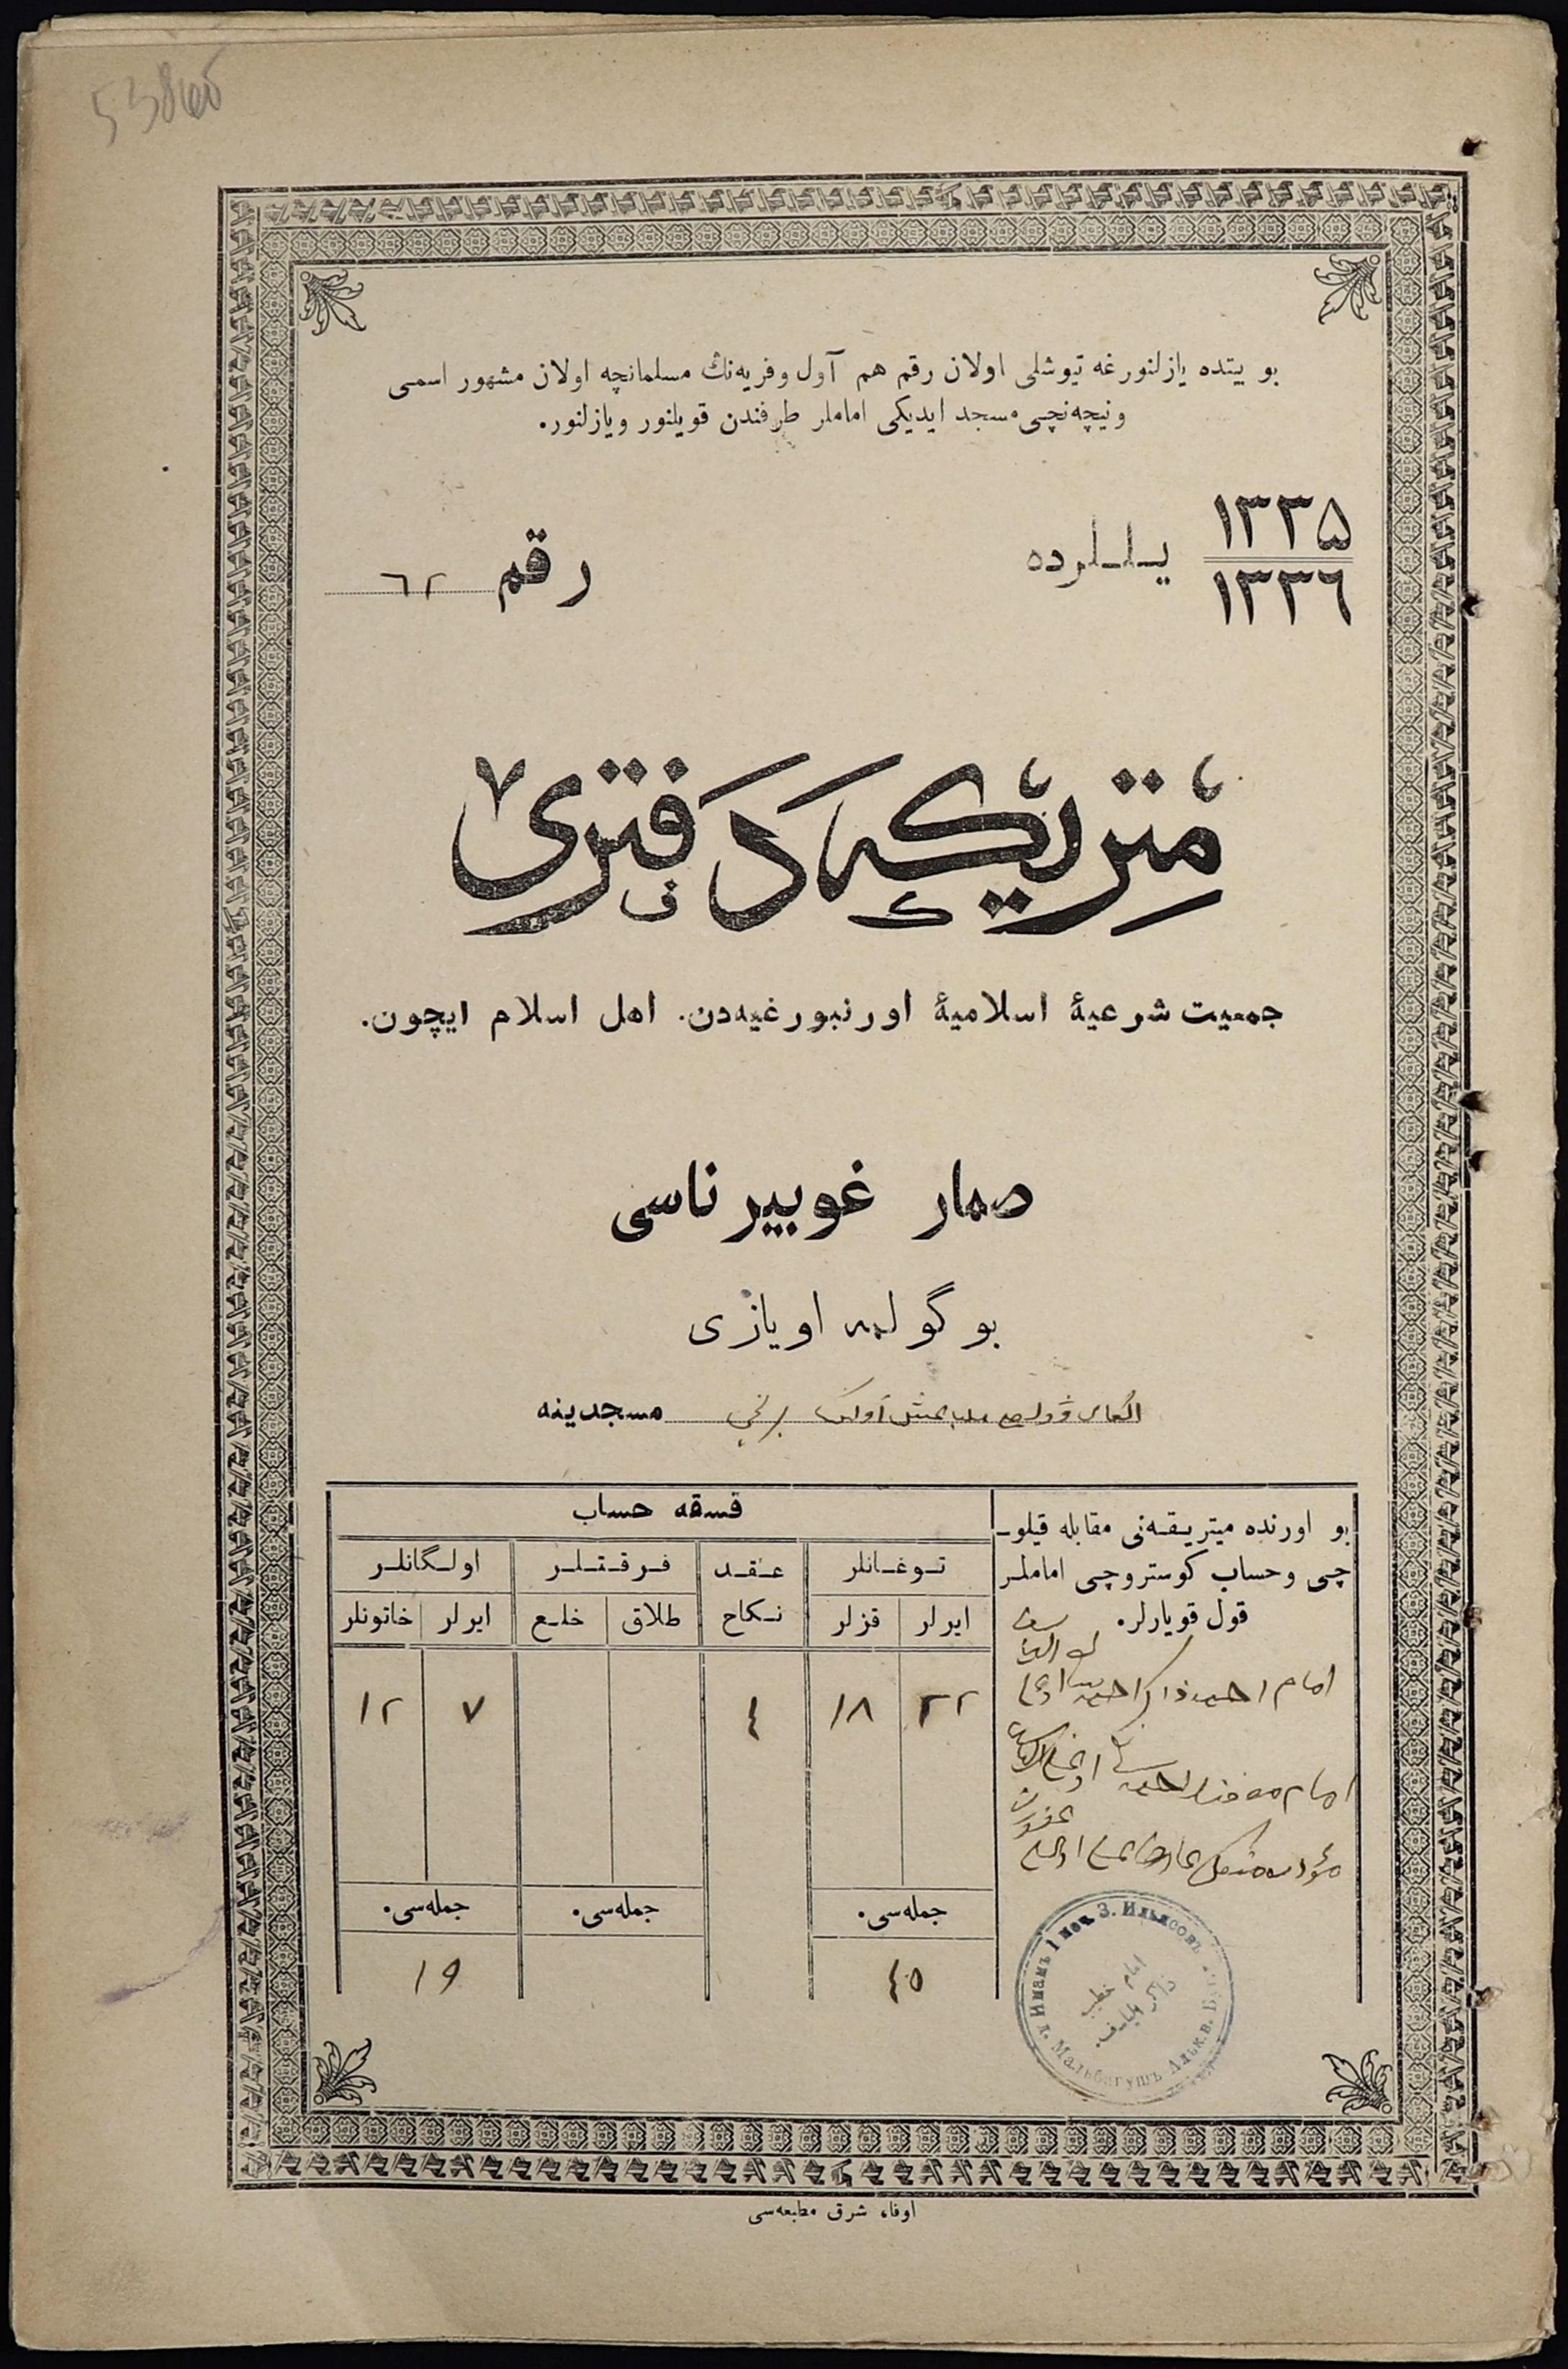 بو بيتده يازلنورغه تيوشلى اولان رقم هم آول وقريه‌نڭ مسلمانچه اولان مشهور اسمى
ونيچه‌نچى مسجد ايديكى اماملر طرفندن قويلنور ويازلنور.
١٣٣٥
١٣٣٦
يللرده
رقم ٦٢
متريكه دفترى
جمعيت شرعيۀ اسلاميۀ اورنبورغيه‌دن. اهل اسلام ايچون.
صمار غوبيرناسى
بوگولمه اويازى
برنچى مسجدينه
بو اورنده ميتريقه‌نى مقابله قيلو-
چى وحساب كوستروچى اماملر
قول قويارلر.
قسقه حساب
توغانلر
عقد
نكاح
فرقتلر
اولگانلر
ايرلر
قزلر
طلاق
خلع
ايرلر
خاتونلر
٢٢
١٨
٤
٧
١٢
امام احمد ذاكر
امام
جمله‌سى.
جمله‌سى.
جمله‌سى.
٤٥
١٩
Имамъ 1 моч. З. Ильясовъ
д. Мальбагушъ Альк.в.
امام خطيب
ذاكر
اوفا، شرق مطبعه‌سى